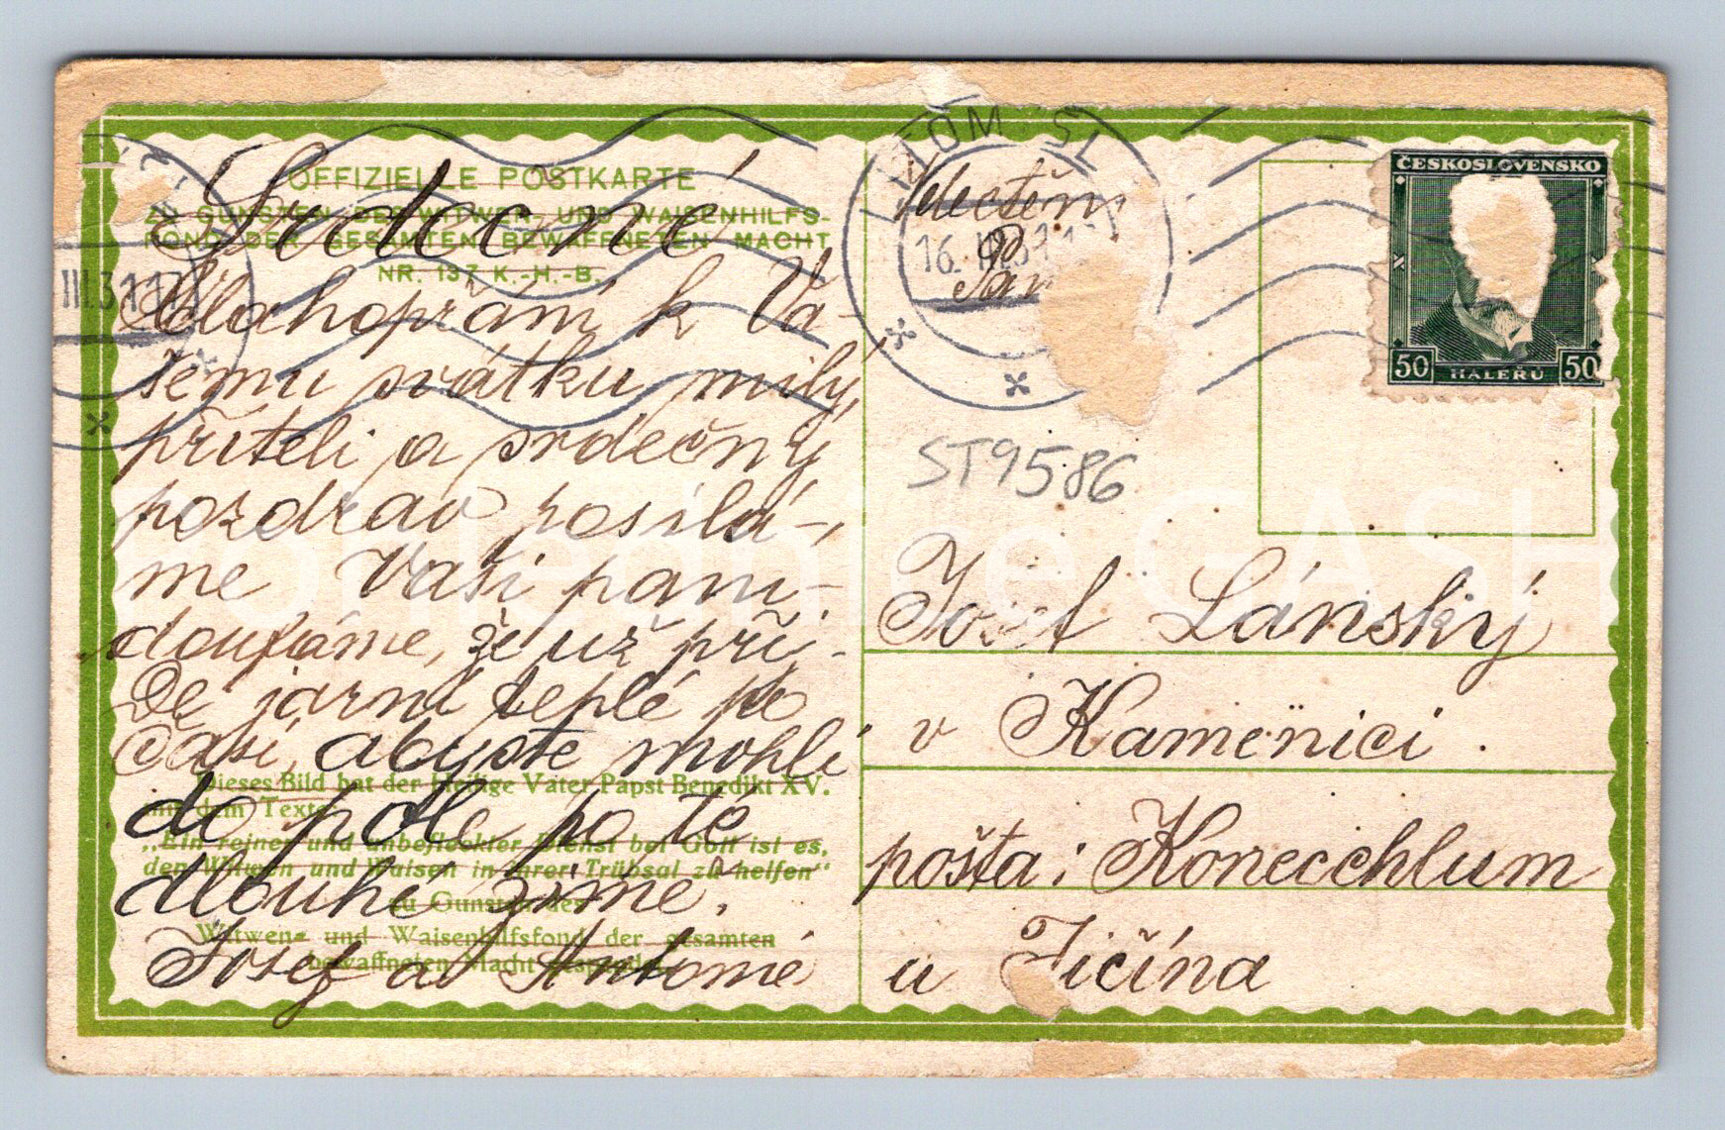 OFFIZIELLE POSTKARTE
ZU GUNSTEN DES WITWEN- UND WAISENHILFS-
FONDS DER GESAMTEN BEWAFFNETEN MACHT
NR. 137 K.-H.-B.
Srdečné
Blahopřání k Va-
šemu svátku milý
příteli a srdečný
pozdrav posílá-
me Vaši paní
doufáme, že už při-
De jarní teplé po
časí, abyste mohli
do pole po té
dlouhé zimě.
Josef a Antonie
Dieses Bild hat der Heilige Vater Papst Benedikt XV.
mit dem Texte
„Ein reiner und unbefleckter Dienst bei Gott ist es,
den Witwen und Waisen in ihrer Trübsal zu helfen“
zu Gunsten des
Witwen- und Waisenhilfsfond der gesamten
bewaffneten Macht
Velectěný
Pan
16. III.31
ČESKOSLOVENSKO
50 HALÉŘŮ 50
ST9586
Josef Lánský
v Kamenici.
pošta: Konecchlum
u Jičína